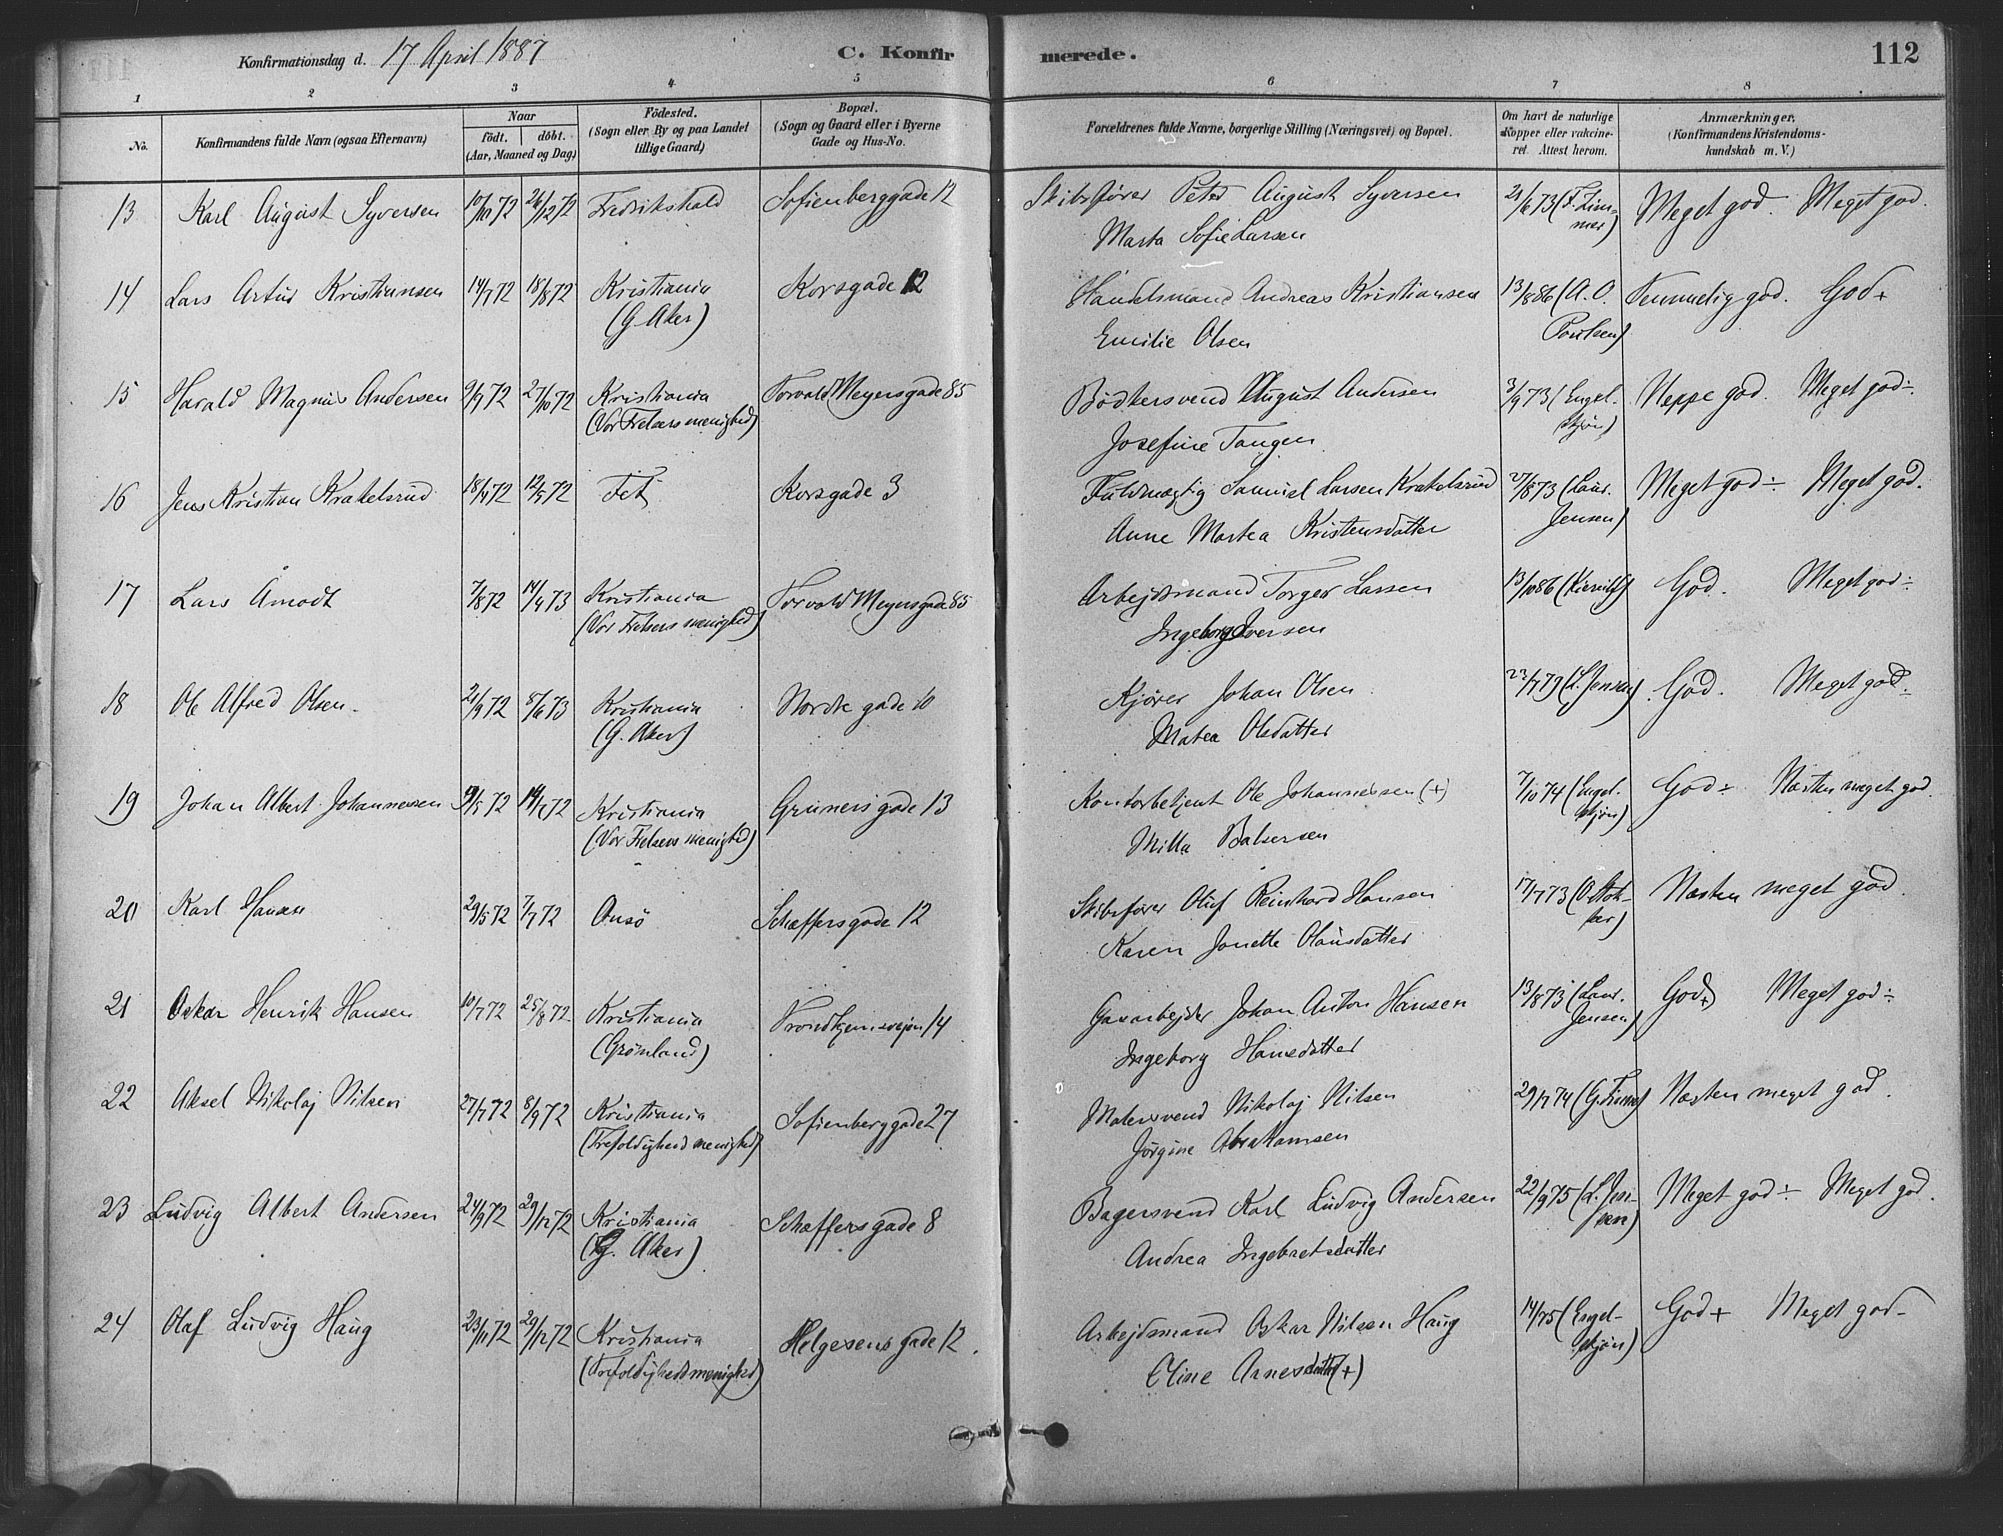 Konfirmationsdag d. 17 April 1887
C. Konfirmerede.
112
1 2 3 4 5 6 7 8
No.
Konfirmandens fulde Navn (ogsaa Efternavn)
Naar
födt. döbt.
(Aar, Maaned og Dag)
Födested.
(Sogn eller By og paa Landet
tillige Gaard)
Bopæl.
(Sogn og Gaard eller i Byerne
Gade og Hus-No.
Forældrenes fulde Navne, borgerlige Stilling (Næringsvei) og Bopæl.
Om havt de naturlige
Kopper eller vakcine-
ret. Attest herom.
Anmærkninger.
(Konfirmandens Kristendoms-
kundskab m. V.)
13 Karl August Syversen 10/10 72 26/12 72 Fredrikshald Sofienberggade 12 Skibsfører Peter August Syversen 21/6 73 (F. Zim- Meget god. Meget god.
Marta Sofie Larsen mer)
14 Lars Artur Kristiansen 14/7 72 18/8 72 Kristiania Korsgade 12 Handelsmand Andreas Kristiansen 13/8 86 (A. O. Temmelig god. God +
(G. Aker) Emilie Olsen Poulsen)
15 Harald Magnus Andersen 9/9 72 27/10 72 Kristiania Torvald Meyersgade 85 Bødkersvend August Andersen 3/9 73 (Engel- Neppe god. Meget god ÷
(Vor Frelsers menighed) Josefine Tangen skjøn)
16 Jens Kristian Krakelsrud 18/4 72 12/5 72 Fet Korsgade 3 Fuldmægtig Samuel Larsen Krakelsrud 27/8 73 (Laur. Meget god ÷ Meget god.
Anne Martea Kristensdatter Jensen)
17 Lars Åmodt 7/8 72 14/4 73 Kristiania Torvald Meyersgade 85 Arbejdsmand Torger Larsen 13/10 86 God. Meget god ÷
(Vor Frelsers menighed) Ingeborg Iversen
18 Ole Alfred Olsen 21/9 72 8/6 73 Kristiania Nordre gade 10 Kjører Johan Olsen 22/7 79 (L. Jensen) God. Meget god ÷
(G. Aker) Matea Olsdatter
19 Johan Albert Johannessen 19/5 72 14/7 72 Kristiania Grüners gade 13 Kontorbetjent Ole Johannessen (+) 7/10 74 (Engel- God ÷ Næsten meget god.
(Vor Frelsers menighed) Milla Balsersen skjøn)
20 Karl Hansen 29/5 72 7/7 72 Onsö Schæffersgade 12 Skibsfører Oluf Reinhard Hansen 17/7 73 Næsten meget god.
Karen Jonette Olausdatter
21 Oskar Henrik Hansen 10/7 72 25/8 72 Kristiania Trondhjemsvejen 14 Gasarbejder Johan Anton Hansen 13/8 73 (Laur. God + Meget god ÷
(Grønland) Ingeborg Hansdatter Jensen)
22 Aksel Nikolaj Nilsen 27/7 72 8/9 72 Kristiania Sofienberggade 27 Malersvend Nikolaj Nilsen 29/7 74 Næsten meget god.
(Trefoldigheds menighed) Jørgine Abrahamsen
23 Ludvig Albert Andersen 24/9 72 29/12 72 Kristiania Schæffersgade 8 Bagersvend Karl Ludvig Andersen 22/9 75 (L. Jen- Meget god ÷ Meget god.
(G. Aker) Andrea Ingebretsdatter sen)
24 Olaf Ludvig Haug 23/11 72 29/12 72 Kristiania Helgesens gade 12. Arbejdsmand Oskar Nilsen Haug (Engel- God + Meget god -
(Trefoldigheds menighed) Oline Arnesdatter (+) skjøn)